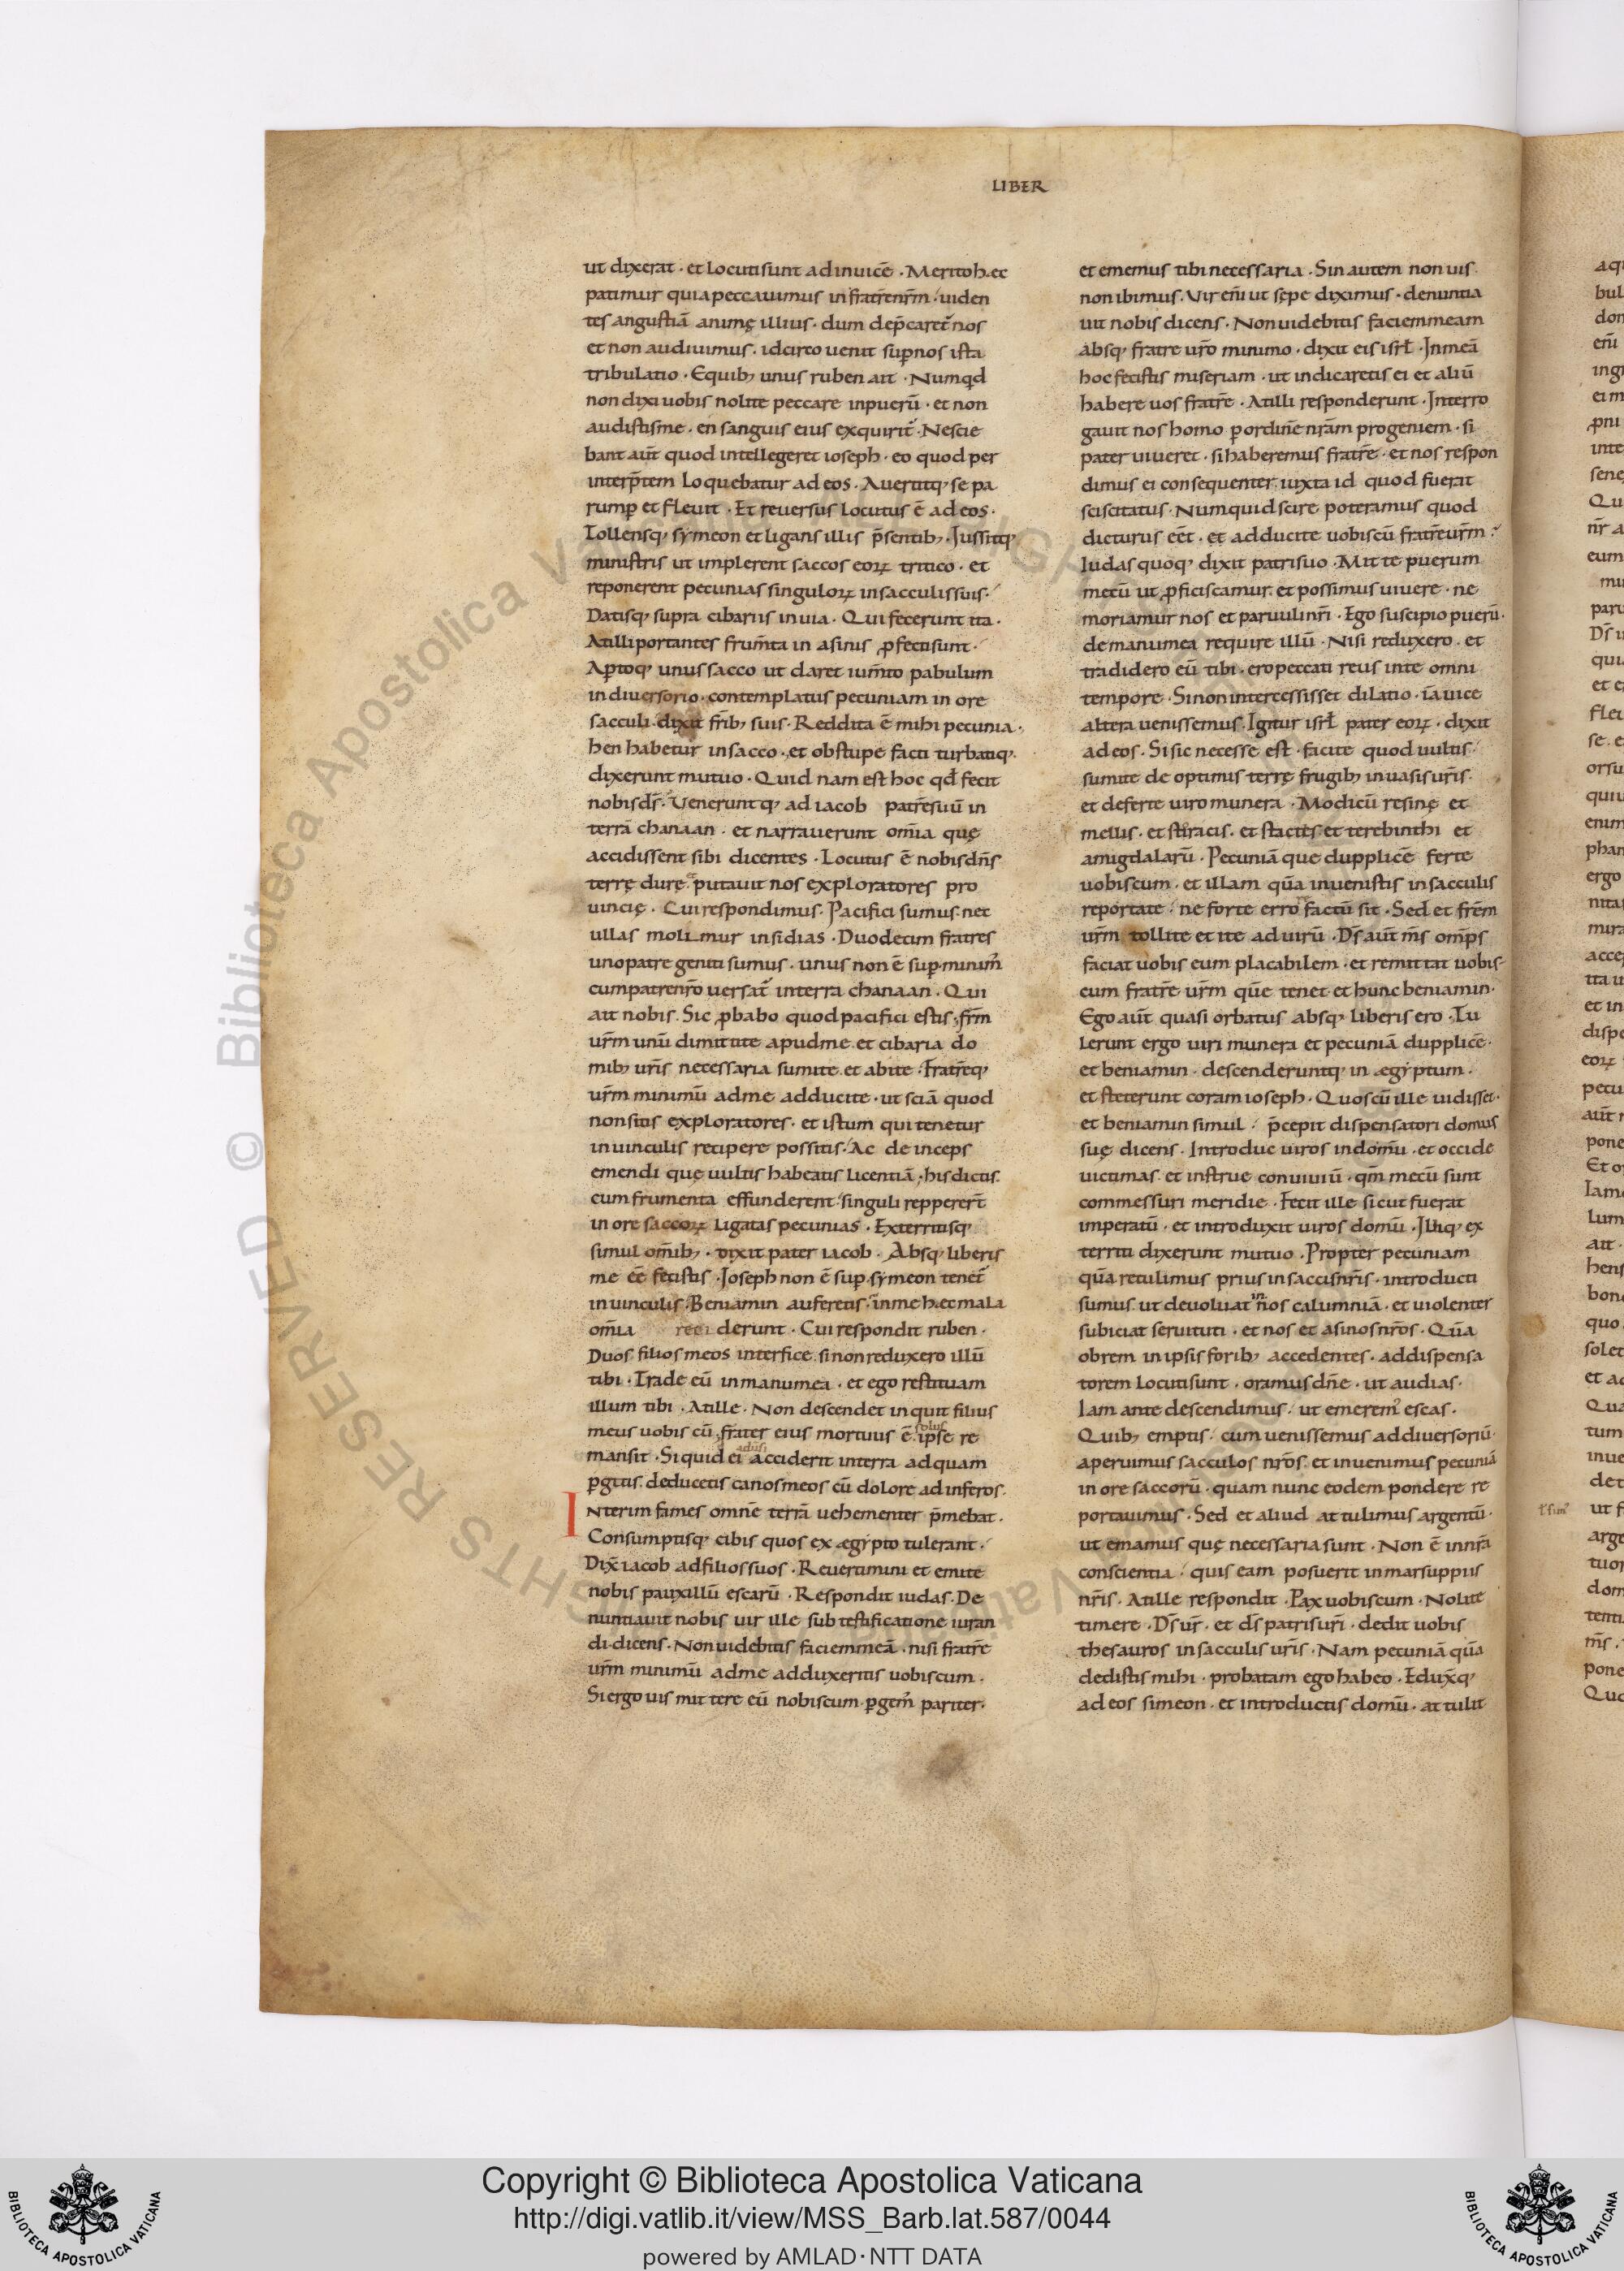 LIBER
ut dixerat · et locuti sunt ad inuicē · Merito hec
patimur quia peccauimus in fratrēnrm̄ · uiden
tes angustiā animę illius · dum dep̄caret᷑ nos
et non audiuimus · idcirco uenit sup nos ista
tribulatio · Equib; unus ruben ait · Numqd
non dixi uobis nolite peccare inpuerū · et non
audistisme · en sanguis eius exquirit᷑ · Nescie
bant aut̄ quod intellegeret ioseph · eo quod per
interp̄tem loquebatur ad eos · Auertitq; se pa
rump et fleuit · Et reuersus locutus ē ad eos ·
Tollensq; sẏmeon et ligans illis p̄sentib; · Jussitq;
ministris ut implerent saccos eoꝝ tritico · et
reponerent pecunias singuloꝝ insacculissuis ·
Datisq; supra cibariis inuia · Qui fecerunt ita ·
Atilli portantes frum̄ta in asinis ꝓfectisunt ·
Aptoq; unus sacco ut daret ium̄to pabulum
in diuersorio · contemplatus pecuniam in ore
sacculi · dixit fr̄ib; suis · Reddita ē mihi pecunia ·
hen habetur insacco · et obstupe facti turbatiq; ·
dixerunt mutuo · Quid nam est hoc qd̄ fecit
nobisds̄ · Uenerunt q; ad iacob patrēsuū in
terrā chanaan · et narrauerunt om̄ia quę
accidissent sibi dicentes · Locutus ē nobisdn̄s
terrę durę · putauit nos exploratores pro
uincię · Cui respondimus · Pacifici sumus · nec
ullas molimur insidias · Duodecim fratres
uno patre geniti sumus · unus non ē sup · minim᷑
cumpatrenr̄o uersat᷑ interra chanaan · Qui
ait nobis · Sic ꝓbabo quod pacifici estis · frm̄
urm̄ unū dimittite apudme et cibaria do
mib; uris̄ necessaria sumite et abite · Fratrēq;
urm̄ minimū adme adducite · ut sciā quod
nonsitis exploratores · et istum qui tenetur
inuinculis recipere possitis · Ac de inceps
emendi quę uultis habeatis licentiā · his dictis ·
cum frumenta effunderent · singuli reppererr̄
in ore saccoꝝ ligatas pecunias · Exterritisq;
simul om̄ib; · dixit pater iacob · Absq; liberis
me ēē fecistis · Joseph non ē sup · sẏmeon tenet᷑
inuinculis · Beniamin auferetis · inme hec mala
om̄ia reci derunt · Cui respondit ruben ·
Duos filios meos interfice · sinonreduxero illū
tibi · Trade eū inmanumea · et ego restituam
illum tibi · Atille · Non descendet inquit filius
solus
meus uobis cū · frater eius mortuus ē · ipse re
mansit · Siquid ei acciderit interra adquam
pgitis · deducetis canosmeos cū dolore ad inferos ·
INterim fames omnē terrā uehementer p̄mebat ·
Consumptisq; cibis quos ex ægẏpto tulerant ·
Dix̄ iacob adfiliossuos · Reuertimini et emite
nobis pauxillū escarū · Respondit iudas · De
nuntiauit nobis uir ille sub testificatione iuran
di dicens · Nonuidebitis faciemmeā · nisi fratrē
urm̄ minimū adme adduxeritis uobiscum ·
Siergo uis mittere eū nobiscum · pgem᷑ pariter ·
et ememus tibi necessaria · Sin autem non uis
non ibimus · Vir eni̅ ut sępe diximus · denuntia
uit nobis dicens · Nonuidebitis faciemmeam
absq; fratre uro̅ minimo · dixit eis isrl̄ · Inmeā
hoc fecistis miseriam · ut indicaretis ei et aliū
habere uos fratrē · Atilli responderunt · Interro
gauit nos homo p ordinē nrām progeniem · si
pater uiueret · si haberemus fratrē · et nos respon
dimus ei consequenter iuxta id quod fuerat
sciscitatus · Numquid scire poteramus quod
dicturus eēt · et adducite uobiscū fratrēurm̄ ·
Iudas quoq; dixit patrisuo · Mitte puerum
mecū ut ꝓficiscamur et possimus uiuere · ne
moriamur nos et paruulinri̅ · Ego suscipio puerū ·
demanumea require illū · Nisi reduxero et
tradidero eū tibi · ero peccati reus inte omni
tempore · Sinon intercessisset dilatio · iā uice
altera uenissemus · Igitur isrl̄ pater eoꝝ · dixit
ad eos · Si sic necesse est · facite quod uultis ·
sumite de optimis terrę frugib; inuasisuris̄ ·
et deferte uiro munera · Modicū resinę et
mellis · et stiracis · et stactes et terebinthi et
amigdalarū · Pecuniā que dupplicē ferte
uobiscum · et illam quā inuenistis insacculis
reportate · ne forte errore factū sit · Sed et frēm
urm̄ tollite et ite ad uirū · Ds̄ aut̄ ms̄ omp̄s
faciat uobis eum placabilem · et remittat uobis
cum fratrē urm̄ quē tenet et hunc beniamin ·
Ego aut̄ quasi orbatus absq; liberis ero · Tu
lerunt ergo uiri munera et pecuniā dupplicē ·
et beniamin · descenderuntq; in ægẏptum ·
et steterunt coram ioseph · Quoscū ille uidisset ·
et beniamin simul · p̄cepit dispensatori domus
suę dicens · Introduc uiros indomū · et occide
uictimas et instrue conuiuiū · qm̄ mecū sunt
commessuri meridie · Fecit ille sicut fuerat
imperatū · et introduxit uiros domū · Ibiq; ex
territi dixerunt mutuo · Propter pecuniam
quā retulimus prius in saccisnris̄ · introducti
sumus ut deuoluat in nos calumniā · et uiolenter
subiciat seruituti · et nos et asinosnrōs · Quā
obrem in ipsis forib; accedentes · addispensa
torem locutisunt · oramus dnē · ut audias ·
Iam ante descendimus · ut emerem᷑ escas ·
Quib; emptis · cum uenissemus addiuersoriū ·
aperuimus sacculos nros̄ et inuenimus pecuniā
in ore saccorū · quam nunc eodem pondere re
portauimus · Sed et aliud attulimus argentū ·
ut emamus quę necessaria sunt · Non ē innrā
conscientia · quis eam posuerit inmarsuppiis
nris̄ · Atille respondit · Pax uobiscum · Nolite
timere · Ds̄ ur̄ · et ds̄ patrisuri̅ · dedit uobis
thesauros insacculis uris̄ · Nam pecuniā quā
dedistis mihi · probatam ego habeo · Edux̄q;
ad eos simeon · et introductis domū · attulit
Copyright © Biblioteca Apostolica Vaticana
http://digi.vatlib.it/view/MSS_Barb.lat.587/0044
powered by AMLAD·NTT DATA
BIBLIOTECA APOSTOLICA VATICANA
BIBLIOTECA APOSTOLICA VATICANA